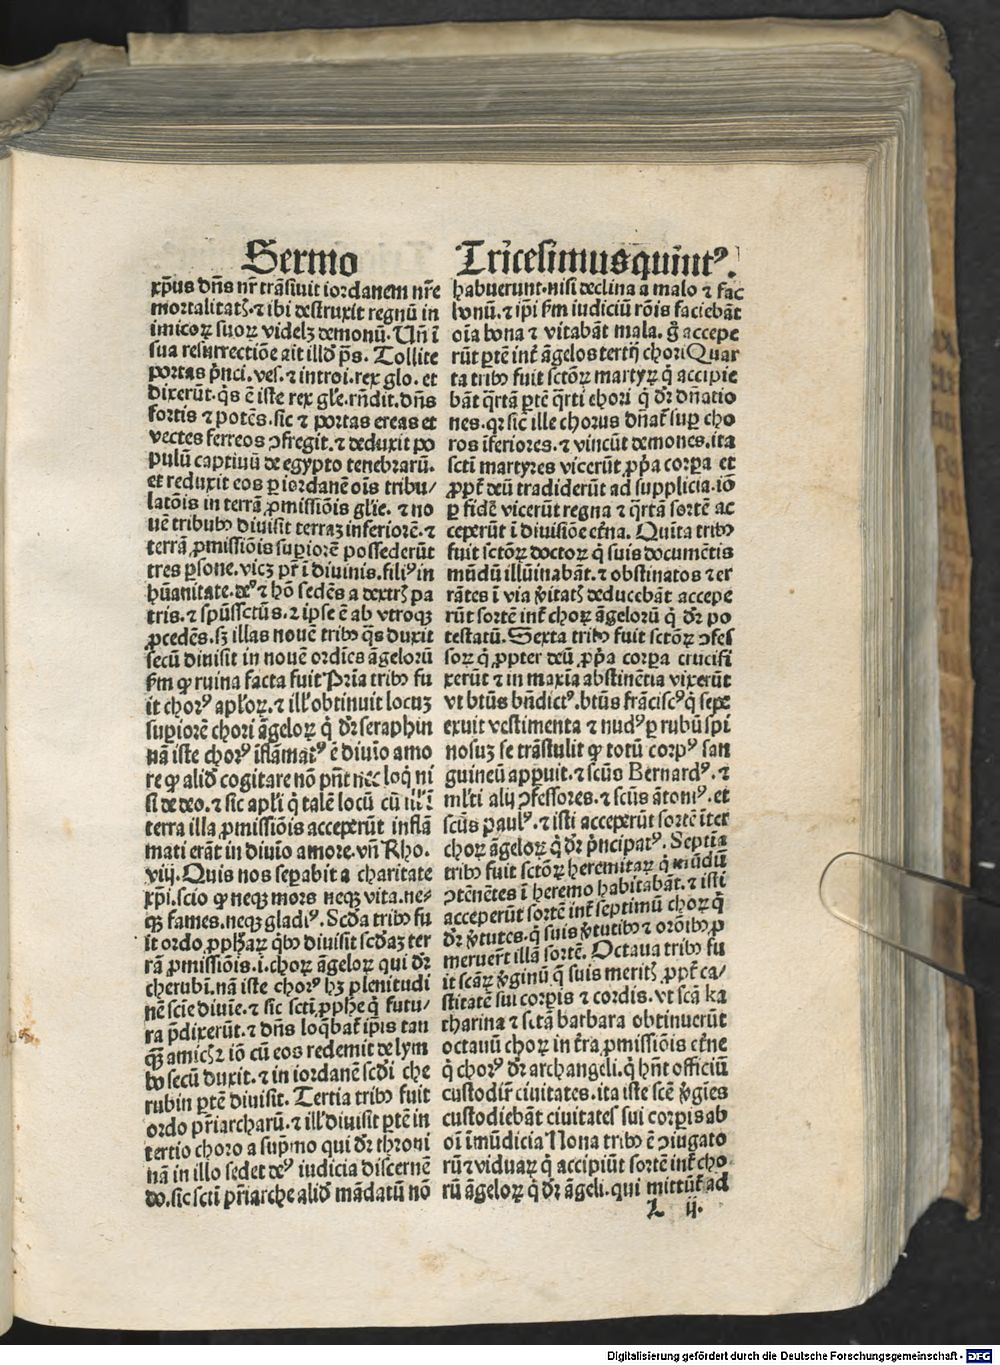 Sermo Tricesimusquintꝰ.
xp̄us dn̄s nr̄ trāsiuit iordanem nr̄e
mortalitatꝭ.⁊ ibi destruxit regnū in
imicoꝝ suoꝝ videlꝫ demonū. Un̄ ī
sua resurrectiōe ait illđ ps̄. Tollite
portas p̄nci. ves. ⁊ introi. rex glo. et
dixerūt. qs̄ ē iste rex gl̄e. rn̄dit. dn̄s
fortis ⁊ potēs. sic ⁊ portas ereas et
vectes ferreos ꝯfregit. ⁊ deduxit po
pulū captiuū de egypto tenebrarū.
et reduxit eos ꝑ iordanē oīs tribu/
latōis in terrā ꝓmissiōis gl̄ie. ⁊ no
uē tribubꝰ diuisit terraꝫ inferiorē. ⁊
terrā ꝓmissiōis suꝑiorē possederūt
tres ꝑsone. vicꝫ pr̄ ī diuinis. filiꝰ in
hūanitate. deꝰ ⁊ hō sedēs a dextrꝭ pa
tris. ⁊ spūssctūs. ⁊ ipse ē ab vtroqꝫ
ꝓcedēs. sꝫ illas nouē tribꝰ qs̄ duxit
secū diuisit in nouē ordīes āgelorū
fm̄ ꝙ ruina facta fuit Prīa tribꝰ fu
it chorꝰ apl̄oꝝ. ⁊ ill̄ obtinuit locuꝫ
suꝑiorē chori āgeloꝝ q̄ dr̄ seraphin
nā iste chorꝰ īflāmatꝰ ē diuīo amo
re ꝙ aliđ cogitare nō pn̄t nec loq̄ ni
si de deo. ⁊ sic apl̄i q̄ talē locū cū
terra illa ꝓmissiōis acceperūt inflā
mati erāt in diuīo amore. vn̄ Rho.
viij. Quis nos seꝑabit a charitate
xp̄i. scio ꝙ neqꝫ mors neqꝫ vita. ne-
qꝫ fames. neqꝫ gladiꝰ. Scđa tribꝰ fu
it ordo ꝓph̄aꝝ qbꝰ diuisit scđaꝫ ter
rā ꝓmissiōis. i. choꝝ āgeloꝝ qui dr̄
cherubī. nā iste chorꝰ hꝫ plenitudi
nē sciē diuīe. ⁊ sic scti ꝓphe q̄ futu/
ra p̄dixerūt. ⁊ dn̄s loq̄bat̄ ip̄is tan
qꝫ̄ amicꝭ ⁊ iō cū eos redemit de lym
bo secū duxit. ⁊ in iordanē scđi che
rubin ꝑtē diuisit. Tertia tribꝰ fuit
ordo pr̄iarcharū. ⁊ ill̄ diuisit ꝑtē in
tertio choro a supmo qui dr̄ throni
nā in illo sedet deꝰ iudicia discernē
do. sic scti pr̄iarche aliđ mādatū nō
habuerunt. nisi declina a malo ⁊ fac
bonū. ⁊ ip̄i fm̄ iudiciū rōis faciebāt
oīa bona ⁊ vitabāt mala. g̊ accepe
rūt ꝑtē int̄ āgelos tertij chori Quar
ta tribꝰ fuit sctōꝝ martyꝝ q̄ accipie
bāt qrtā ꝑtē qrti chori q̄ dr̄ dn̄atio
nes. qꝛ sic̄ ille chorus dn̄at̄ suꝑ cho
ros īferiores. ⁊ vincūt demones. ita
scti martyres vicerūt ꝓp̄a corꝑa et
ꝓpt̄ deū tradiderūt ad supplicia. iō
ꝑ fidē vicerūt regna ⁊ qrtā sortē ac
ceperūt ī diuisiōe et̄na. Quīta tribꝰ
fuit sctōꝝ doctoꝝ q̄ suis documētis
mūdū illūinabāt. ⁊ obstinatos ⁊ er
rātes ī via v̄itatꝭ deducebāt accepe
rūt sortē int̄ choꝝ āgelorū q̄ dr̄ po
testatū. Sexta tribꝰ fuit sctōꝝ ꝯfes
soꝝ q̄ ꝓpter deū ꝓp̄a corꝑa crucifi
xerūt ⁊ in maxīa abstinētia vixerūt
vt btūs bn̄dictꝰ. btūs frāciscꝰ q̄ sepe
exuit vestimenta ⁊ nudꝰ ꝑ rubū spi
nosuꝫ se trāstulit ꝙ totū corpꝰ san
guineū apꝑuit. ⁊ scūs Bernardꝰ. ⁊
ml̄ti alij ꝯfessores. ⁊ scūs ātoniꝰ. et
scūs paulꝰ. ⁊ isti acceperūt sortē īter
choꝝ āgeloꝝ q̄ dr̄ p̄ncipatꝰ. Septīa
tribꝰ fuit sctōꝝ heremitaꝝ q̄ mūdū
ꝯtēnētes ī heremo habitabāt. ⁊ isti
acceperūt sortē int̄ septimū choꝝ q̄
dr̄ v̄tutes. q̄ suis v̄tutibꝰ ⁊ orōibꝰ ꝓ
meruer̄t illā sortē. Octaua tribꝰ fu
it scāꝝ v̄ginū q̄ suis meritꝭ ꝓpt̄ ca/
stitatē sui corꝑis ⁊ cordis. vt scā ka
tharina ⁊ sctā barbara obtinuerūt
octauū choꝝ in t̄ra ꝓmissiōis et̄ne
q̄ chorꝰ dr̄ archangeli. q̄ hn̄t officiū
custodir̄ ciuitates. ita iste scē v̄gīes
custodiebāt ciuitates sui corꝑis ab
oī īmūdicia Nona tribꝰ ē ꝯiugato
rū ⁊ viduaꝝ q̄ accipiūt sortē int̄ cho
rū āgeloꝝ q̄ dr̄ āgeli. qui mittūt̄ ad
L ij.
Digitalisierung gefördert durch die Deutsche Forschungsgemeinschaft - DFG